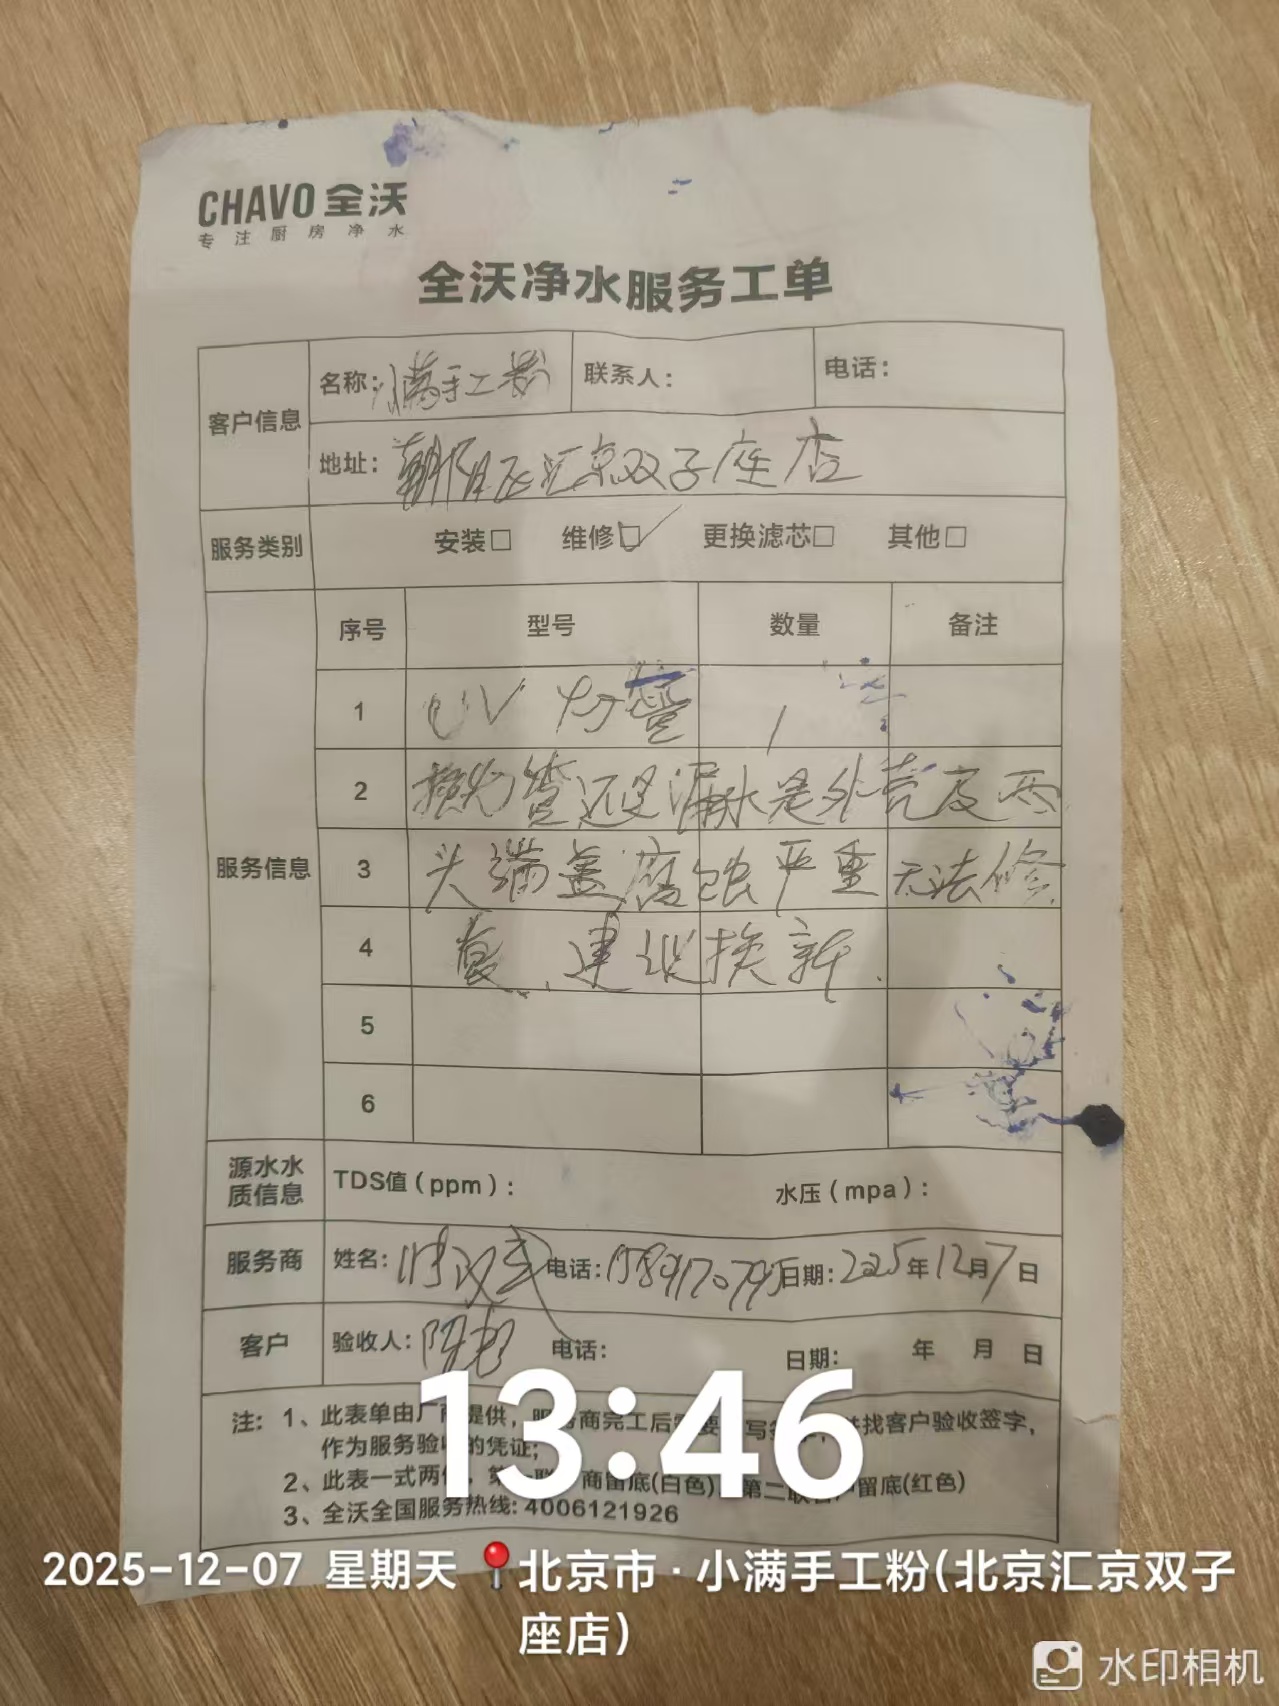 CHAVO 全沃
专注厨房净水
全沃净水服务工单
客户信息 名称：小满手工粉 联系人： 电话：
地址：朝阳区汇京双子座店
服务类别 安装□ 维修☑ 更换滤芯□ 其他□
服务信息 序号 型号 数量 备注
1 UV灯管 1
2 换灯管还是漏水是外壳及两
3 头端盖腐蚀严重无法修
4 复、建议换新.
5
6
源水水质信息 TDS值（ppm）： 水压（mpa）：
服务商 姓名： 电话： 日期：2025年12月7日
客户 验收人： 电话： 日期： 年 月 日
注：1、此表单由厂商提供，服务商完工后需要填写 并找客户验收签字，
作为服务验收的凭证；
2、此表一式两份，第一联 商留底(白色) 第二联客户留底(红色)
3、全沃全国服务热线：4006121926
13:46
2025-12-07 星期天 北京市·小满手工粉(北京汇京双子
座店)
水印相机